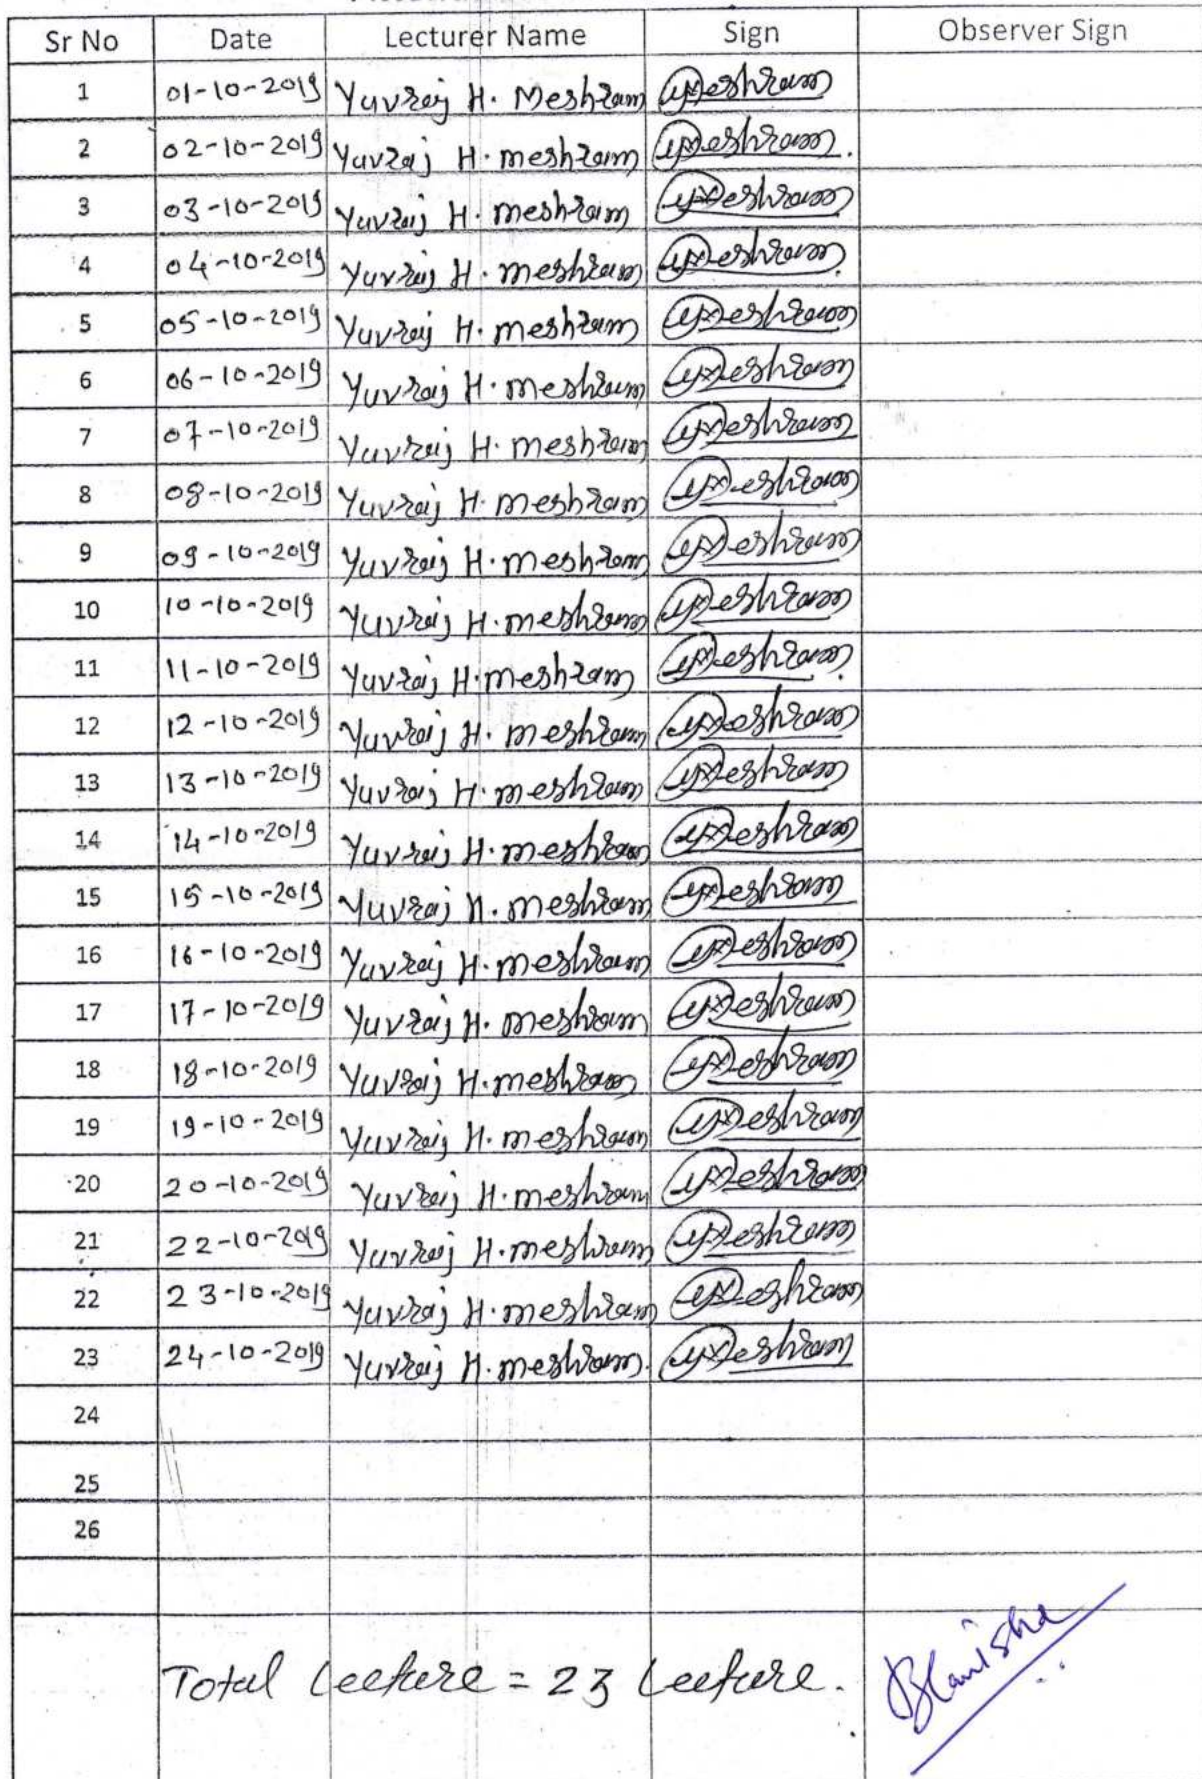 Sr No Date Lecturer Name Sign Observer Sign
1 01-10-2019 Yuvraj H. Meshram Meshram
2 02-10-2019 Yuvraj H. meshram Meshram
3 03-10-2019 Yuvraj H. meshram Meshram
4 04-10-2019 Yuvraj H. meshram Meshram
5 05-10-2019 Yuvraj H. meshram Meshram
6 06-10-2019 Yuvraj H. meshram Meshram
7 07-10-2019 Yuvraj H. meshram Meshram
8 08-10-2019 Yuvraj H. meshram Meshram
9 09-10-2019 Yuvraj H. meshram Meshram
10 10-10-2019 Yuvraj H. meshram Meshram
11 11-10-2019 Yuvraj H. meshram Meshram
12 12-10-2019 Yuvraj H. meshram Meshram
13 13-10-2019 Yuvraj H. meshram Meshram
14 14-10-2019 Yuvraj H. meshram Meshram
15 15-10-2019 Yuvraj H. meshram Meshram
16 16-10-2019 Yuvraj H. meshram Meshram
17 17-10-2019 Yuvraj H. meshram Meshram
18 18-10-2019 Yuvraj H. meshram Meshram
19 19-10-2019 Yuvraj H. meshram Meshram
20 20-10-2019 Yuvraj H. meshram Meshram
21 22-10-2019 Yuvraj H. meshram Meshram
22 23-10-2019 Yuvraj H. meshram Meshram
23 24-10-2019 Yuvraj H. meshram. Meshram
24
25
26
Total Lecture = 23 Lecture.